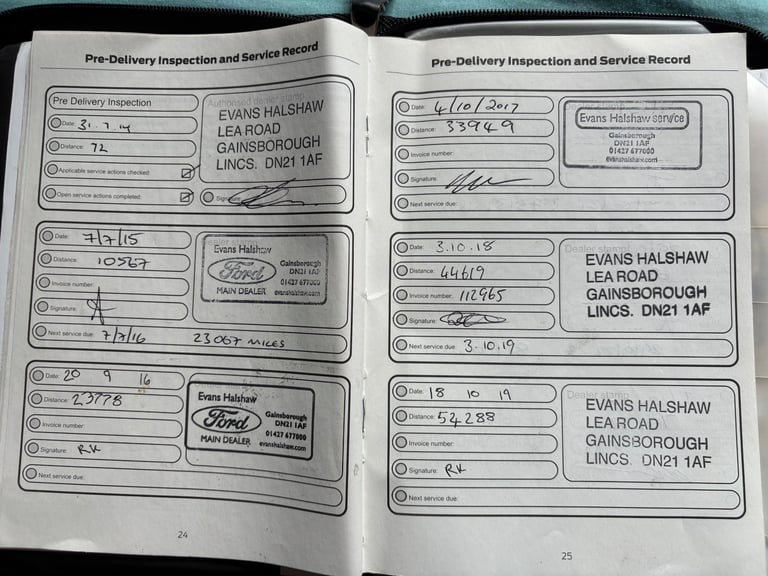 Pre-Delivery Inspection and Service Record
Pre Delivery Inspection
Date: 31.7.14
Distance: 72
Applicable service actions checked:
Open service actions completed:
Authorised dealer stamp
EVANS HALSHAW
LEA ROAD
GAINSBOROUGH
LINCS. DN21 1AF
Date: 7/7/15
Distance: 10567
Invoice number:
Signature:
Next service due: 7/7/16 23067 MILES
Dealer stamp
Evans Halshaw
Ford
MAIN DEALER
Gainsborough
DN21 1AF
01427 677000
evanshalshaw.com
Date: 20 9 16
Distance: 23778
Invoice number:
Signature: RK
Next service due:
Evans Halshaw
Ford
MAIN DEALER
Gainsborough
DN21 1AF
01427 677000
evanshalshaw.com
24
Pre-Delivery Inspection and Service Record
Date: 4/10/2017
Distance: 33949
Invoice number:
Signature:
Next service due:
Dealer stamp
Evans Halshaw service
Gainsborough
DN21 1AF
01427 677000
evanshalshaw.com
Date: 3.10.18
Distance: 44619
Invoice number: 112965
Signature:
Next service due: 3.10.19
Dealer stamp
EVANS HALSHAW
LEA ROAD
GAINSBOROUGH
LINCS. DN21 1AF
Date: 18 10 19
Distance: 54288
Invoice number:
Signature: RK
Next service due:
Dealer stamp
EVANS HALSHAW
LEA ROAD
GAINSBOROUGH
LINCS. DN21 1AF
25